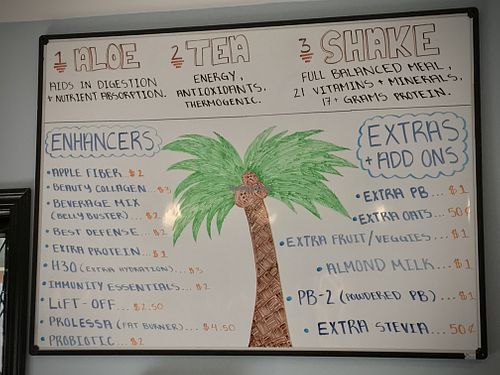 1 ALOE
AIDS IN DIGESTION
+ NUTRIENT ABSORPTION.
2 TEA
ENERGY,
ANTIOXIDANTS.
THERMOGENIC.
3 SHAKE
FULL BALANCED MEAL,
21 VITAMINS + MINERALS.
17+ GRAMS PROTEIN.
ENHANCERS
• APPLE FIBER $2
• BEAUTY COLLAGEN... $3
• BEVERAGE MIX
(BELLY BUSTER)... $2
• BEST DEFENSE... $2
• EXTRA PROTEIN... $1
• H3O (EXTRA HYDRATION)... $3
• IMMUNITY ESSENTIALS... $2
• LIFT-OFF... $2.50
• PROLESSA (FAT BURNER)... $4.50
• PROBIOTIC... $2
EXTRAS
+ ADD ONS
• EXTRA PB... $1
• EXTRA OATS... 50¢
• EXTRA FRUIT/VEGGIES... $1
• ALMOND MILK... $1
• PB-2 (POWDERED PB)... $1
• EXTRA STEVIA... 50¢